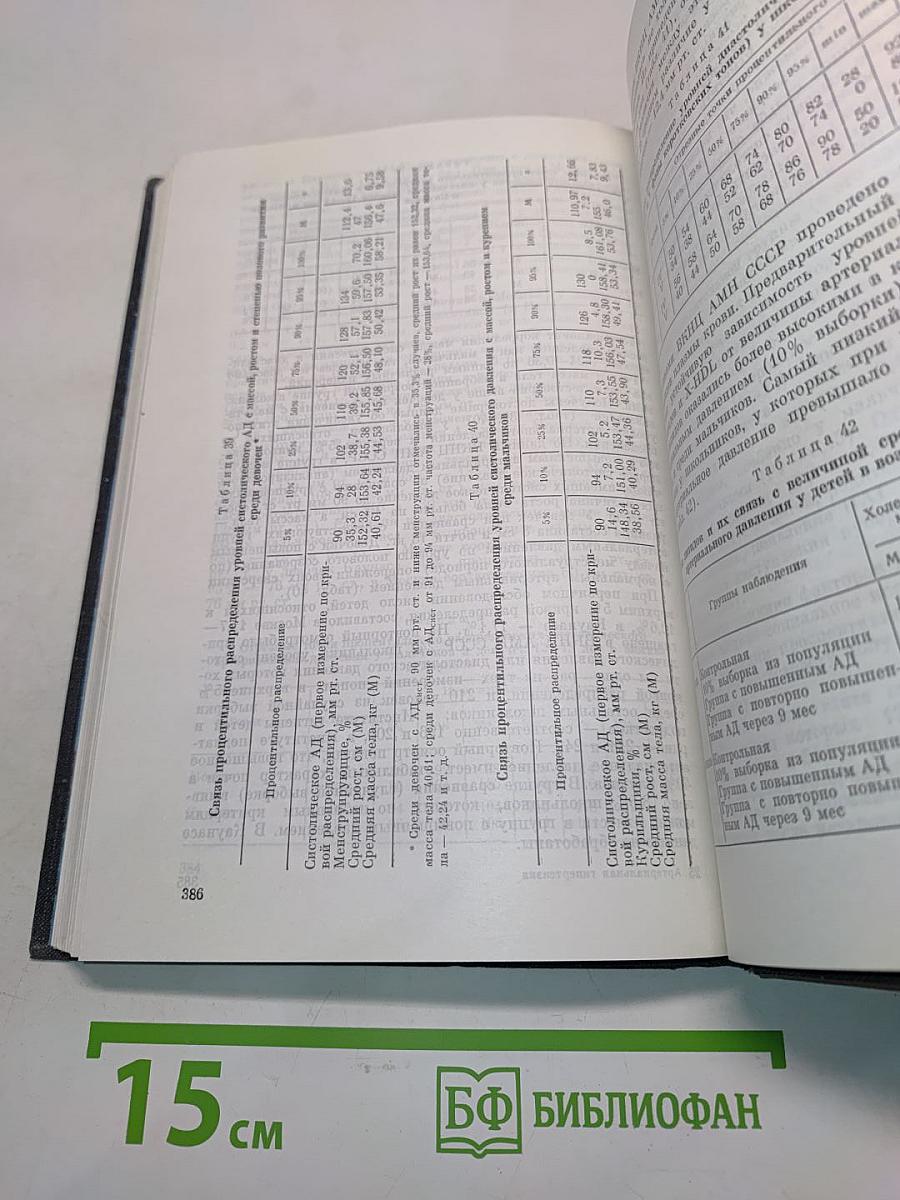 Таблица 39
Связь процентильного распределения уровней систолического АД с массой, ростом и степенью полового развития
среди девочек *
Процентильное распределение 5% 10% 25% 50% 75% 90% 95% 100% M
Систолическое АД (первое измерение по кри-
вой распределения), мм рт. ст. 90 94 102 110 120 128 134 112,4 13,6
Менструирующие, % 35,3 28 38,7 39,2 52,1 57,1 59,6 70,2 47
Средний рост, см (М) 152,32 153,64 155,38 155,85 156,50 157,83 157,50 160,06 156,4 6,75
Средняя масса тела, кг (М) 40,61 42,24 44,53 45,68 48,10 50,42 53,35 58,21 47,6 9,58
* Среди девочек с АДсист 90 мм рт. ст. и ниже менструации отмечались в 35,3% случаев, средний рост их равен 152,32, средняя
масса тела 40,61; среди девочек с АДсист от 91 до 94 мм рт. ст. частота менструаций — 28%, средний рост — 153,64, средняя масса те-
ла — 42,24 и т. д.
Таблица 40
Связь процентильного распределения уровней систолического давления с массой, ростом и курением
среди мальчиков
Процентильное распределение 5% 10% 25% 50% 75% 90% 95% 100% M
Систолическое АД (первое измерение по кри-
вой распределения), мм рт. ст. 90 94 102 110 118 126 130 110,97 12,66
Курильщики, % 14,6 7,2 5,2 7,3 10,3 4,8 0 8,5 7,2
Средний рост, см (М) 148,34 151,00 153,47 153,55 156,03 158,30 158,41 161,08 155 7,83
Средняя масса тела, кг (М) 38,56 40,29 44,36 43,90 47,54 49,41 53,34 53,76 46,0 9,43
386
Таблица 41
10% 25% 50% 75% 90% 95% min
54 60 68 74 80 82 28
38 44 52 62 70 74 0
58 64 70 78 86 90 50
44 50 58 68 76 78 20
ВНЦ АМН СССР проведено
плазмы крови. Предварительный
зависимость уровней
X-HDL от величины артериал
оказались более высокими в
давлением (10% выборки)
мальчиков. Самый низкий
школьников, у которых при
давление превышало
Таблица 42
и их связь с величиной сре
давления у детей в воз
Группы наблюдения
Холе
М
Контрольная
10% выборка из популяции
Группа с повышенным АД
Группа с повторно повышен-
ным АД через 9 мес
Контрольная
10% выборка из популяции
Группа с повышенным АД
Группа с повторно повыш
ным АД через 9 мес
15 см
БФ БИБЛИОФАН